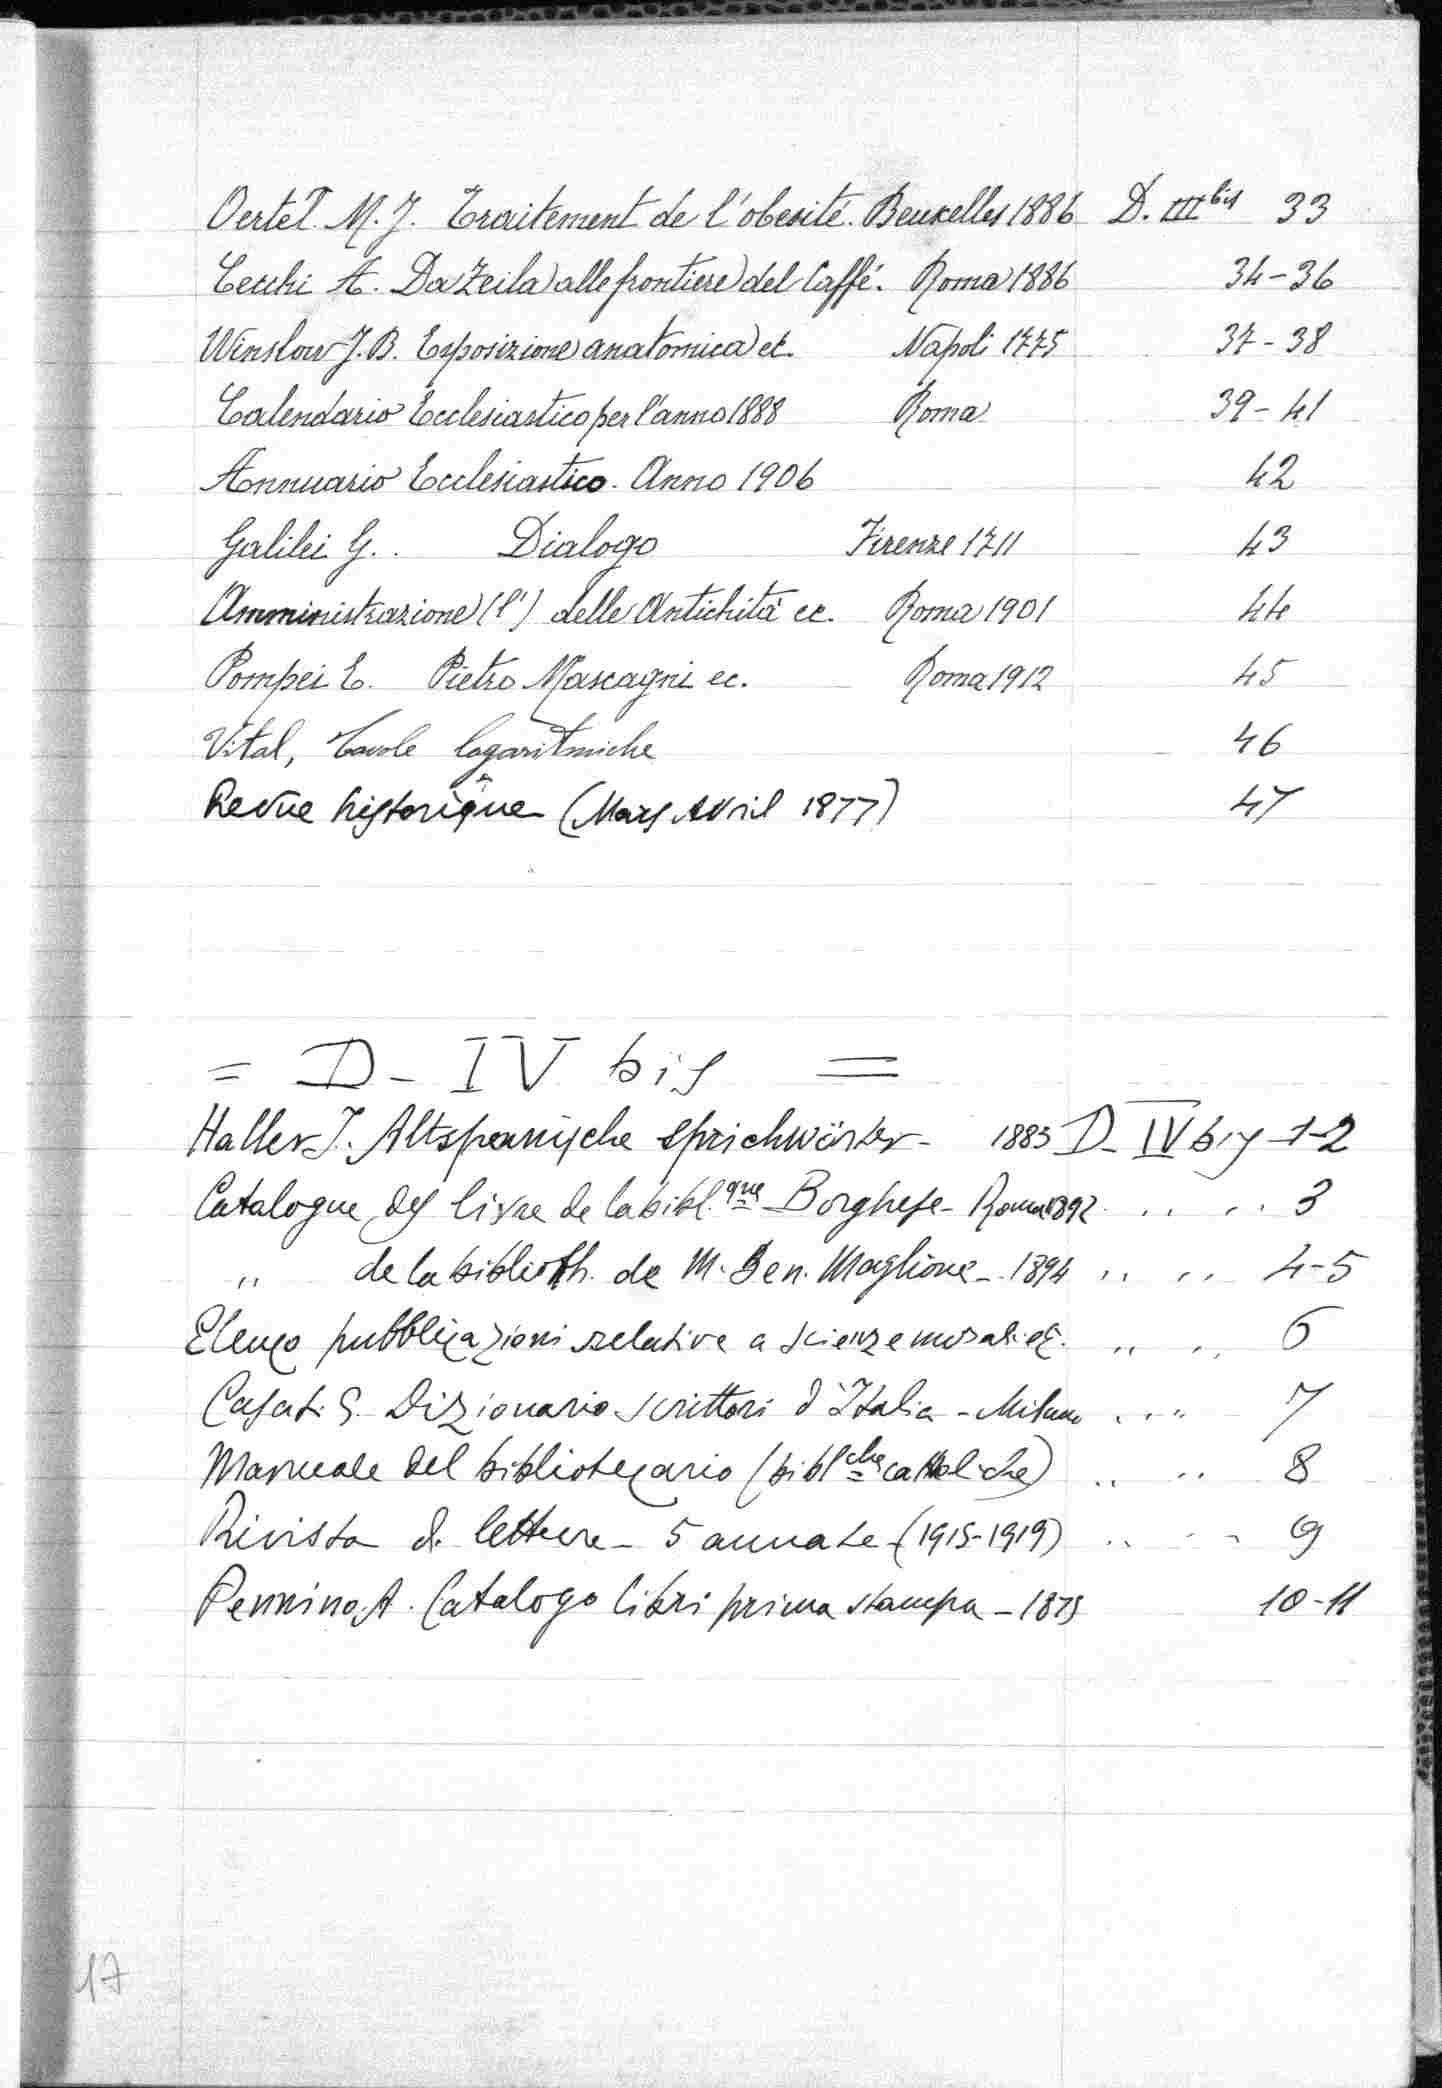 Oertel M. J. Traitement de l'obesité. Bruxelles 1886 D. III bis 33
Cecchi A. Da Zeila alle frontiere del Caffé. Roma 1886 34-36
Winslow J. B. Esposizione anatomica ec. Napoli 1775 37-38
Calendario Ecclesiastico per l'anno 1888 Roma 39-41
Annuario Ecclesiastico. Anno 1906 42
Galilei G. . Dialogo Firenze 1711 43
Amministrazione (l') delle Antichità ec. Roma 1901 44
Pompei E. Pietro Mascagni ec. Roma 1912 45
Vital, Tavole logaritmiche 46
Revue historique (Mars Avril 1877) 47
= D - IV bis =
Haller J. Altspanische Sprichwörter - 1883 D - IV bis 1-2
Catalogue des livre de la bibl.que Borghese - Roma 1892 " " 3
" de la biblioth. de M. Ben. Maglione - 1894 " " 4-5
Elenco pubblicazioni relative a scienze morali ec. " " 6
Casati G. Dizionario scrittori d'Italia - Milano " " 7
Manuale del bibliotecario (bibl.che cattoliche) " " 8
Rivista di letture - 5 annate - (1915-1919) " " 9
Pennino A. Catalogo libri prima stampa - 1875 10-11
17